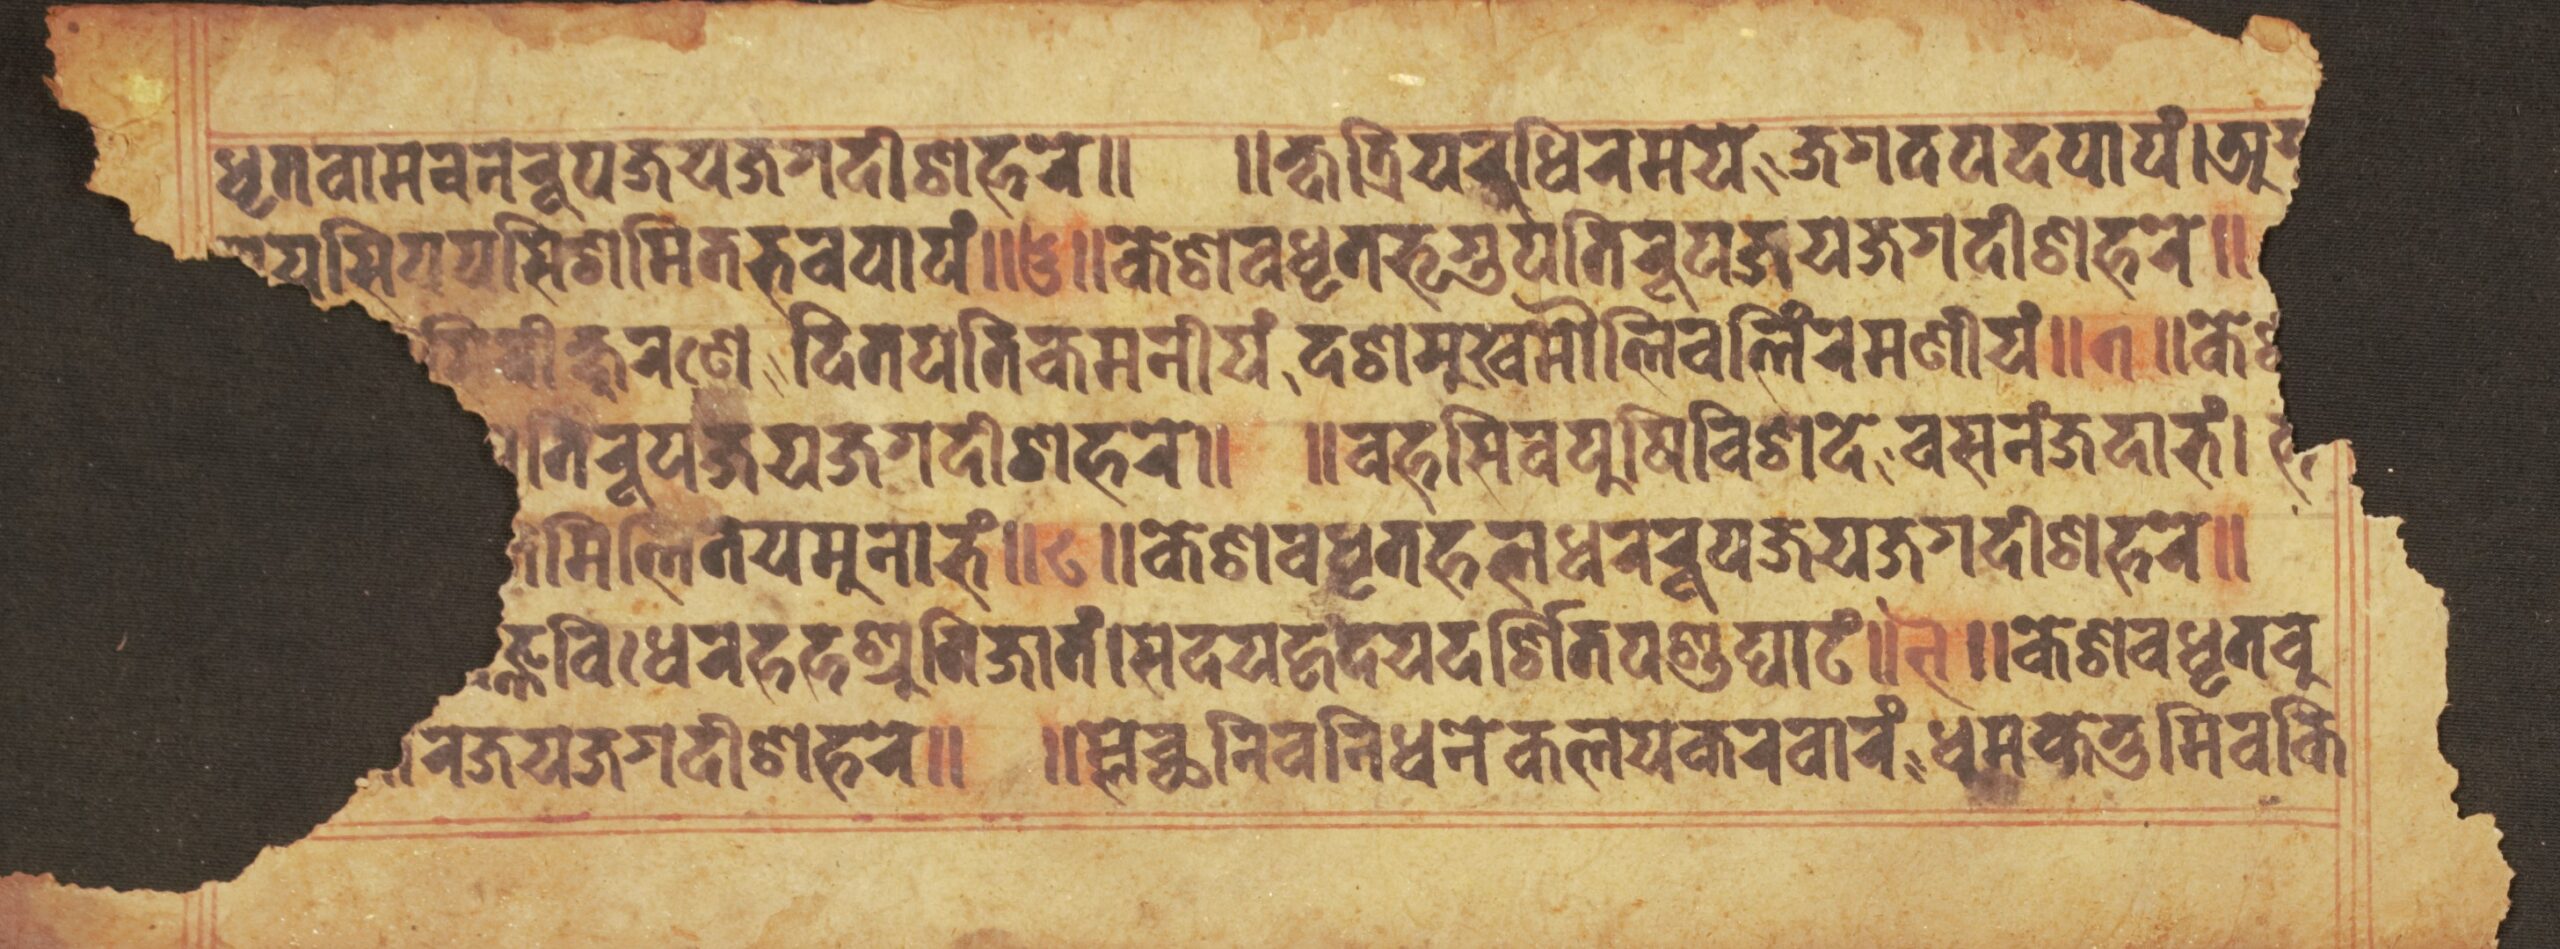 धृतवामवनरूपजयजगदीशहरे॥ ॥क्षत्रियरुधिरमये, जगतपदपापं।
यसिपयसिशमितभवपापं॥६॥केशवधृतभृगुपतिरूपजयजगदीशहरे॥
रणे, दितपतिकमनीयं, दशमुखमौलिवलिंरमणीयं॥७॥के
तिरूपजयजगदीशहरे॥ ॥वहसिवपुषिविशदे, वसनंजदाभं।
मिलितयमुनाभं॥८॥केशवधृतहलधररूपजयजगदीशहरे॥
विधेरहहश्रुतिजातं।सदयहृदयदर्शितपशुघाटं॥९॥केशवधृतवु
रजयजगदीशहरे॥ ॥म्लेच्छनिवनिधनेकलयकरवारं, धूमकेतुमिवकि